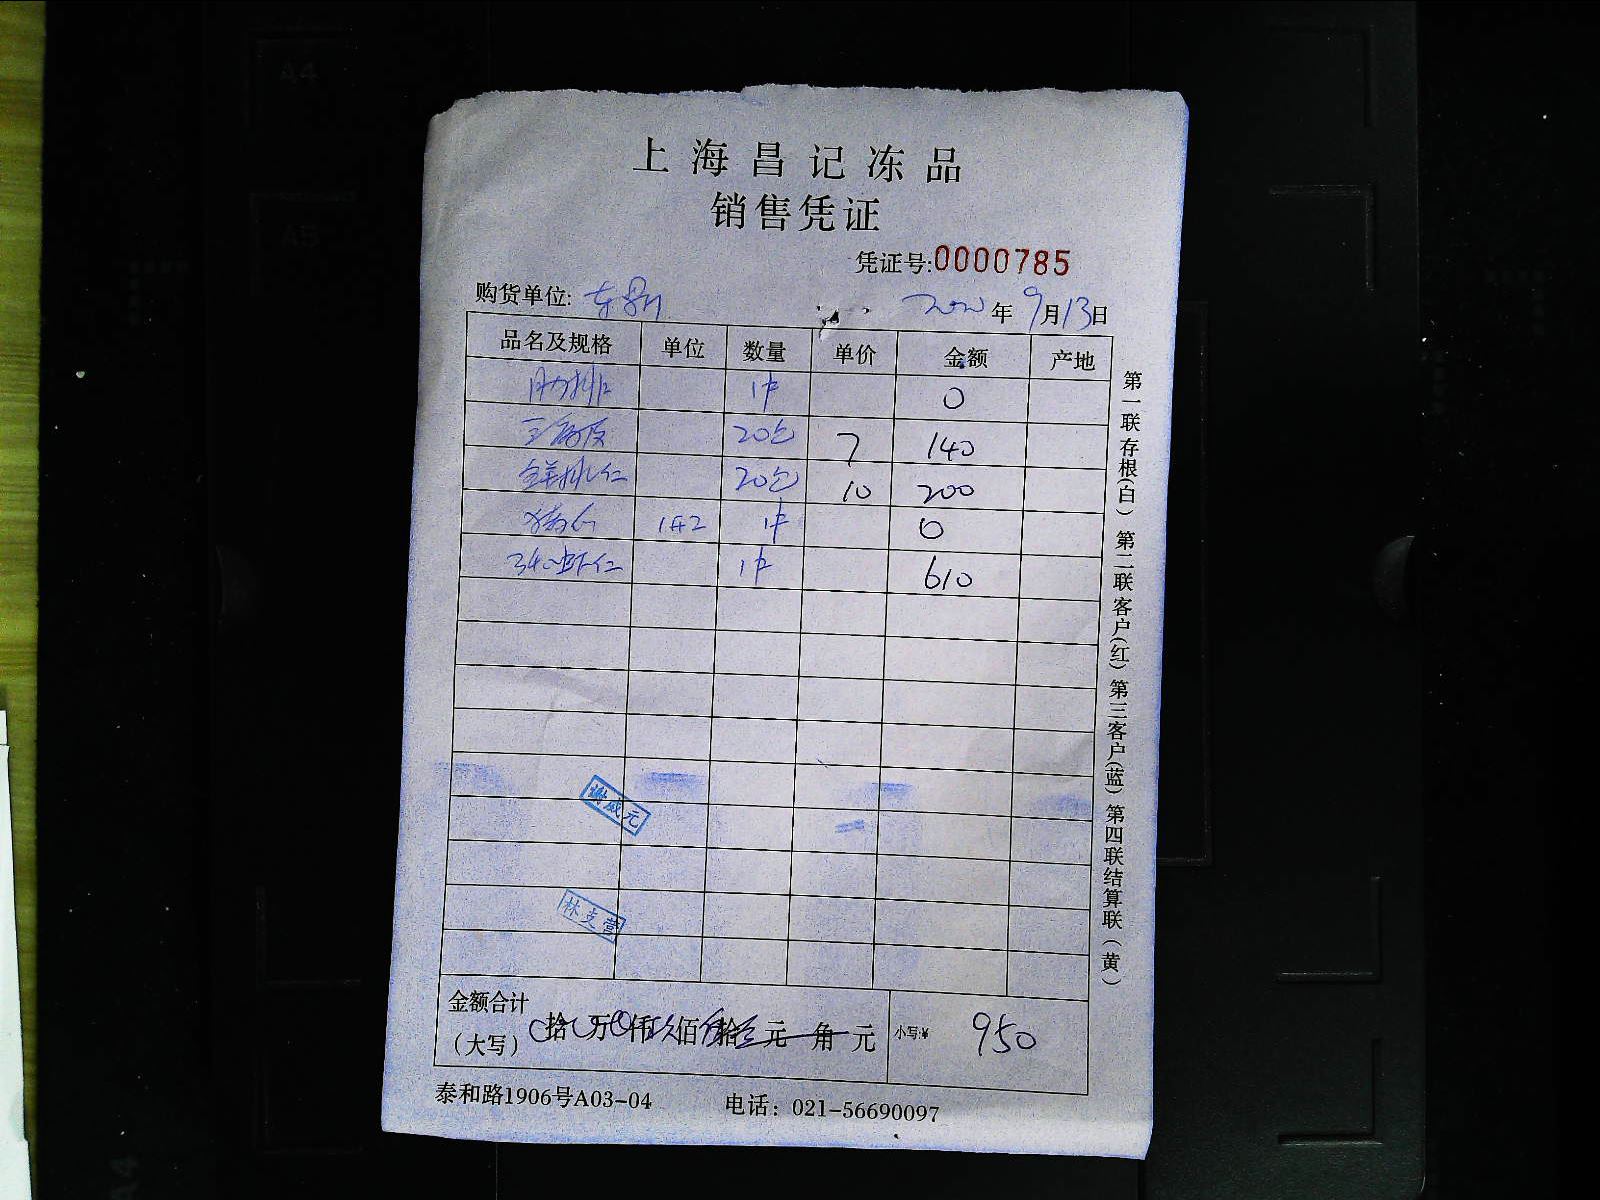 上海昌记冻品
销售凭证
凭证号:0000785
购货单位: 年9月13日
品名及规格 单位 数量 单价 金额 产地
肋排 1件 0
20包 7 140
20包 10 200
1件 0
虾仁 1件 610
谢成元
林支营
金额合计
(大写) 拾 万 仟 玖佰 伍拾 元 角 元 小写:¥ 950
泰和路1906号A03-04 电话: 021-56690097
第一联存根(白) 第二联客户(红) 第三客户(蓝) 第四联结算联(黄)